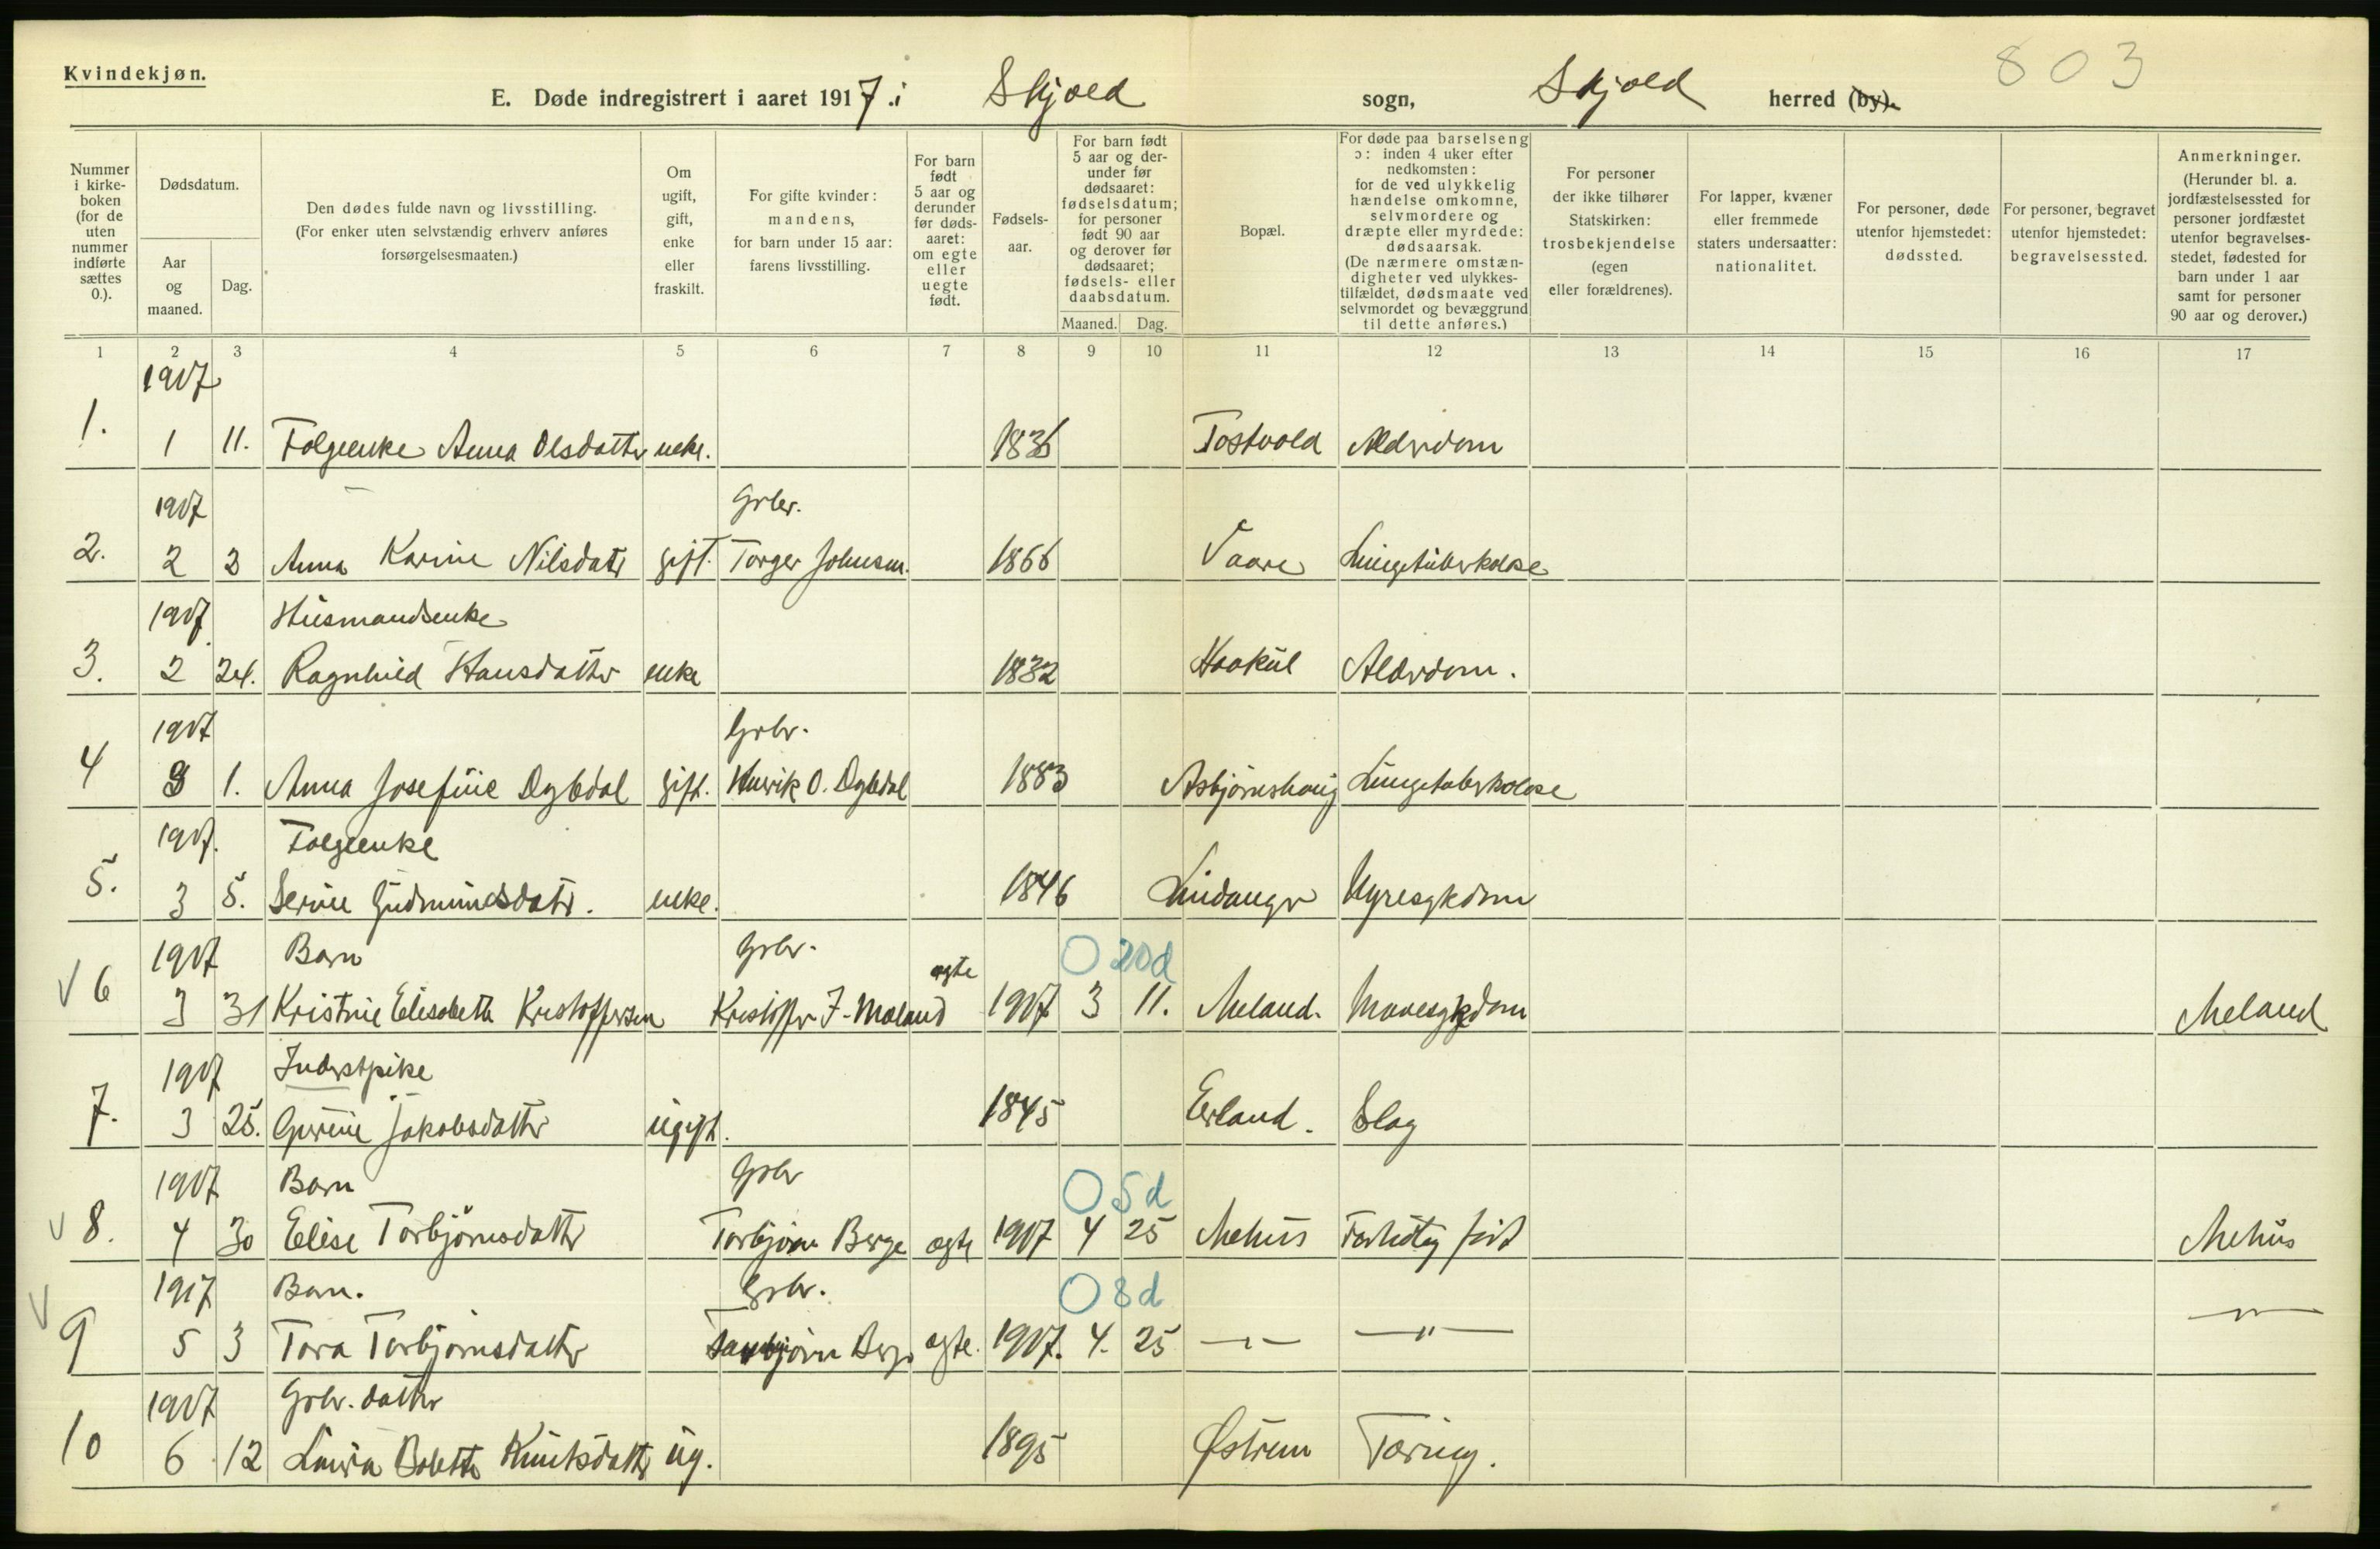 Kvindekjøn.
803
E. Døde indregistrert i aaret 1917 i Skjold sogn, Skjold herred (by).
Nummer i kirkeboken (for de uten nummer indførte sættes 0.).
Dødsdatum.
Aar og maaned.
Dag.
Den dødes fulde navn og livsstilling.
(For enker uten selvstændig erhverv anføres forsørgelsesmaaten.)
Om ugift, gift, enke eller fraskilt.
For gifte kvinder: mandens, for barn under 15 aar: farens livsstilling.
For barn født 5 aar og derunder før dødsaaret: om egte eller uegte født.
Fødselsaar.
For barn født 5 aar og derunder før dødsaaret: fødselsdatum; for personer født 90 aar og derover før dødsaaret; fødsels- eller daabsdatum.
Maaned. Dag.
Bopæl.
For døde paa barselseng ɔ: inden 4 uker efter nedkomsten: for de ved ulykkelig hændelse omkomne, selvmordere og dræpte eller myrdede: dødsaarsak. (De nærmere omstændigheter ved ulykkestilfældet, dødsmaate ved selvmordet og bevæggrund til dette anføres.)
For personer der ikke tilhører Statskirken: trosbekjendelse (egen eller forældrenes).
For lapper, kvæner eller fremmede staters undersaatter: nationalitet.
For personer, døde utenfor hjemstedet: dødssted.
For personer, begravet utenfor hjemstedet: begravelsessted.
Anmerkninger. (Herunder bl. a. jordfæstelsessted for personer jordfæstet utenfor begravelsesstedet, fødested for barn under 1 aar samt for personer 90 aar og derover.)
1 2 3 4 5 6 7 8 9 10 11 12 13 14 15 16 17
1917
1. 1 11. Folgeenke Anna Olsdatter enke. 1836 Tostvold Alderdom
1917 Grbr.
2. 2 2 Anna Karine Nilsdatr gift. Torger Johnsen. 1866 Vaare Lungetuberkolose
1917 Husmandsenke
3. 2 24. Ragnhild Hansdatter enke 1832 Haakul Alderdom.
1917 Grbr.
4 3 1. Anna Josefine Dybdal gift. Henrik O. Dybdal 1883 Asbjørnshaug Lungetuberkolose
1917. Folgeenke
5. 3 5. Serine Gudmundsdatr. enke. 1846 Lindanger Nyresykdom
1917 Barn Grbr. 0 20d
V 6 3 31 Kristine Elisabeth Kristoffersen Kristoffer J. Mæland ægte 1917 3 11. Meland. Mavesykdom Meland
1917 Inderstpike
7. 3 25. Gurine Jakobsdatter ugift. 1845 Erland. Slag
1917 Barn Grbr 0 5d
V 8. 4 30 Elise Torbjörnsdatter Torbjörn Berge ægte 1917 4 25 Mehus Forhetig født Mehus
1917 Barn. Grbr. 0 8d
V 9 5 3 Tora Torbjörnsdatter Torbjörn Berge ægte. 1917. 4. 25 — " — — " — — " —
1917 Grbr. datter
10 6 12 Laura Bolette Knutsdatter ug. 1895 Østrem Tæring.